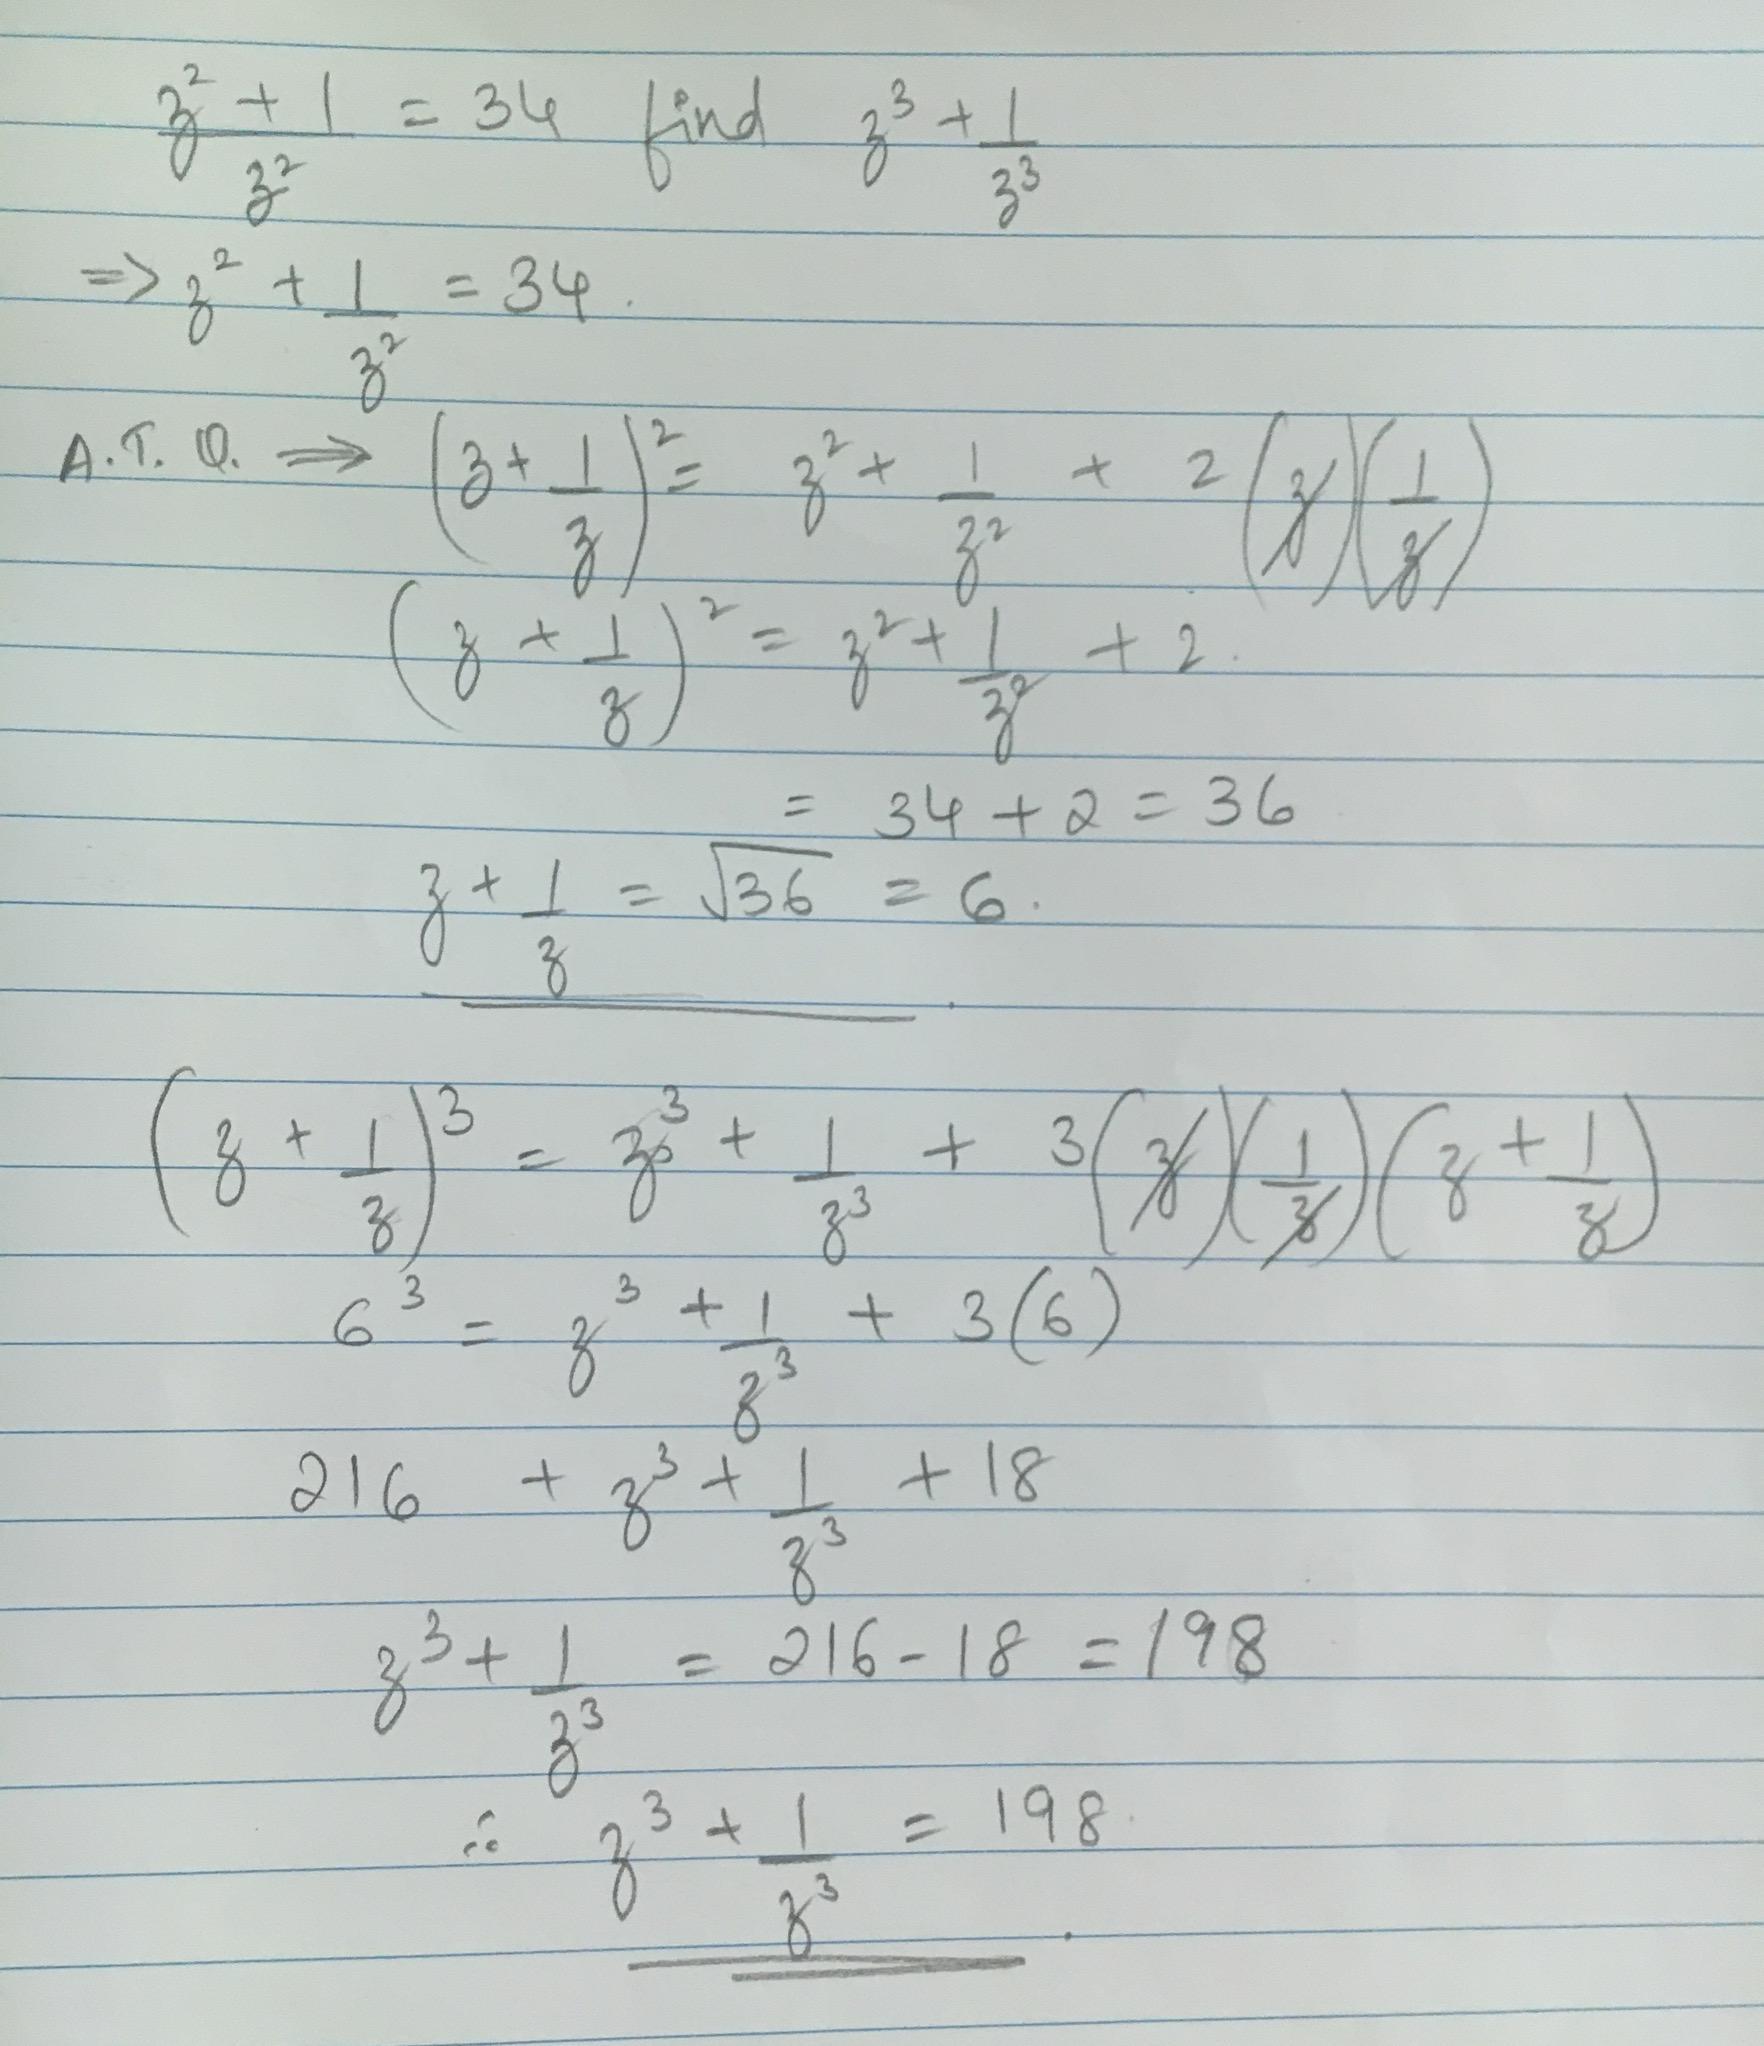 z² + 1 / z² = 34 find z³ + 1/z³
=> z² + 1/z² = 34.
A.T.Q. => (z + 1/z)² = z² + 1/z² + 2(z)(1/z)
(z + 1/z)² = z² + 1/z² + 2.
= 34 + 2 = 36
z + 1/z = √36 = 6.
(z + 1/z)³ = z³ + 1/z³ + 3(z)(1/z)(z + 1/z)
6³ = z³ + 1/z³ + 3(6)
216 + z³ + 1/z³ + 18
z³ + 1/z³ = 216 - 18 = 198
∴ z³ + 1/z³ = 198.